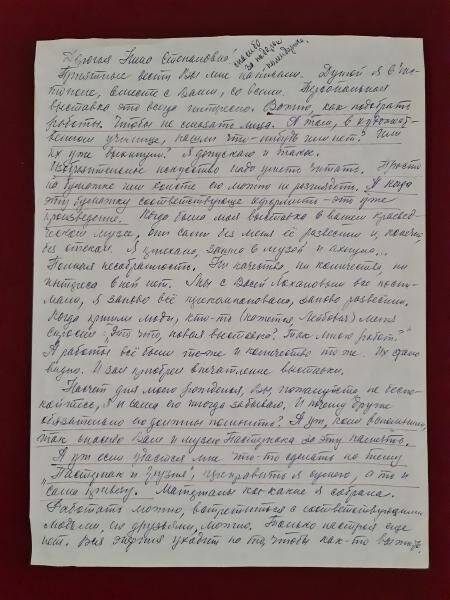 Дорогая Нина Степановна! спасибо за подарок календарик.
Приятные вести Вы мне написали. Душой я в Чи-
стополе, вместе с Вами, со всеми. Персональная
выставка это всегда интересно. Важно, как подобрать
работы. Чтобы не смазать лица. А там, в художест-
венном училище, нашли что-нибудь или нет? Или
их уже выкинули? Я допускаю и такое.
Изобразительное искусство надо уметь читать. Просто
на бумажке или холсте его можно не разглядеть. А когда
эту бумажку соответствующе оформить - это уже
произведение. Когда была моя выставка в вашем краевед-
ческом музее, они сами без меня её развесили и, конечно,
без отбора. Я приехала, зашла в музей и ахнула...
Полная несобранность. Ни качества, ни количества, ни
интереса в ней нет. Мы с Васей Локановым все посни-
мали, я заново всё прикомпоновала, заново развесили.
Когда пришли люди, кто-то (кажется, Любовь) меня
спросили: "Это что, новая выставка? Так много работ?"
А работы все были те же и количество то же. Их стало
видно. И зал приобрел впечатление выставки.
Насчет дня моего рождения, Вы, пожалуйста, не беспо-
койтесь, я и сама его иногда забываю. И почему другие
обязательно его должны помнить? А уж, коли вспомнили,
так спасибо Вам и музею Пастернака за эту память.
А уж если удастся мне что-то сделать на тему
"Пастернак и Грузия", и исправить я сумею, а то и
сама привезу. Материалы кое-какие я собрала.
Работать можно, встретиться с соответствующими
людьми, их друзьями, можно. Только настроя еще
нет. Вся энергия уходит на то, чтобы как-то выжить.